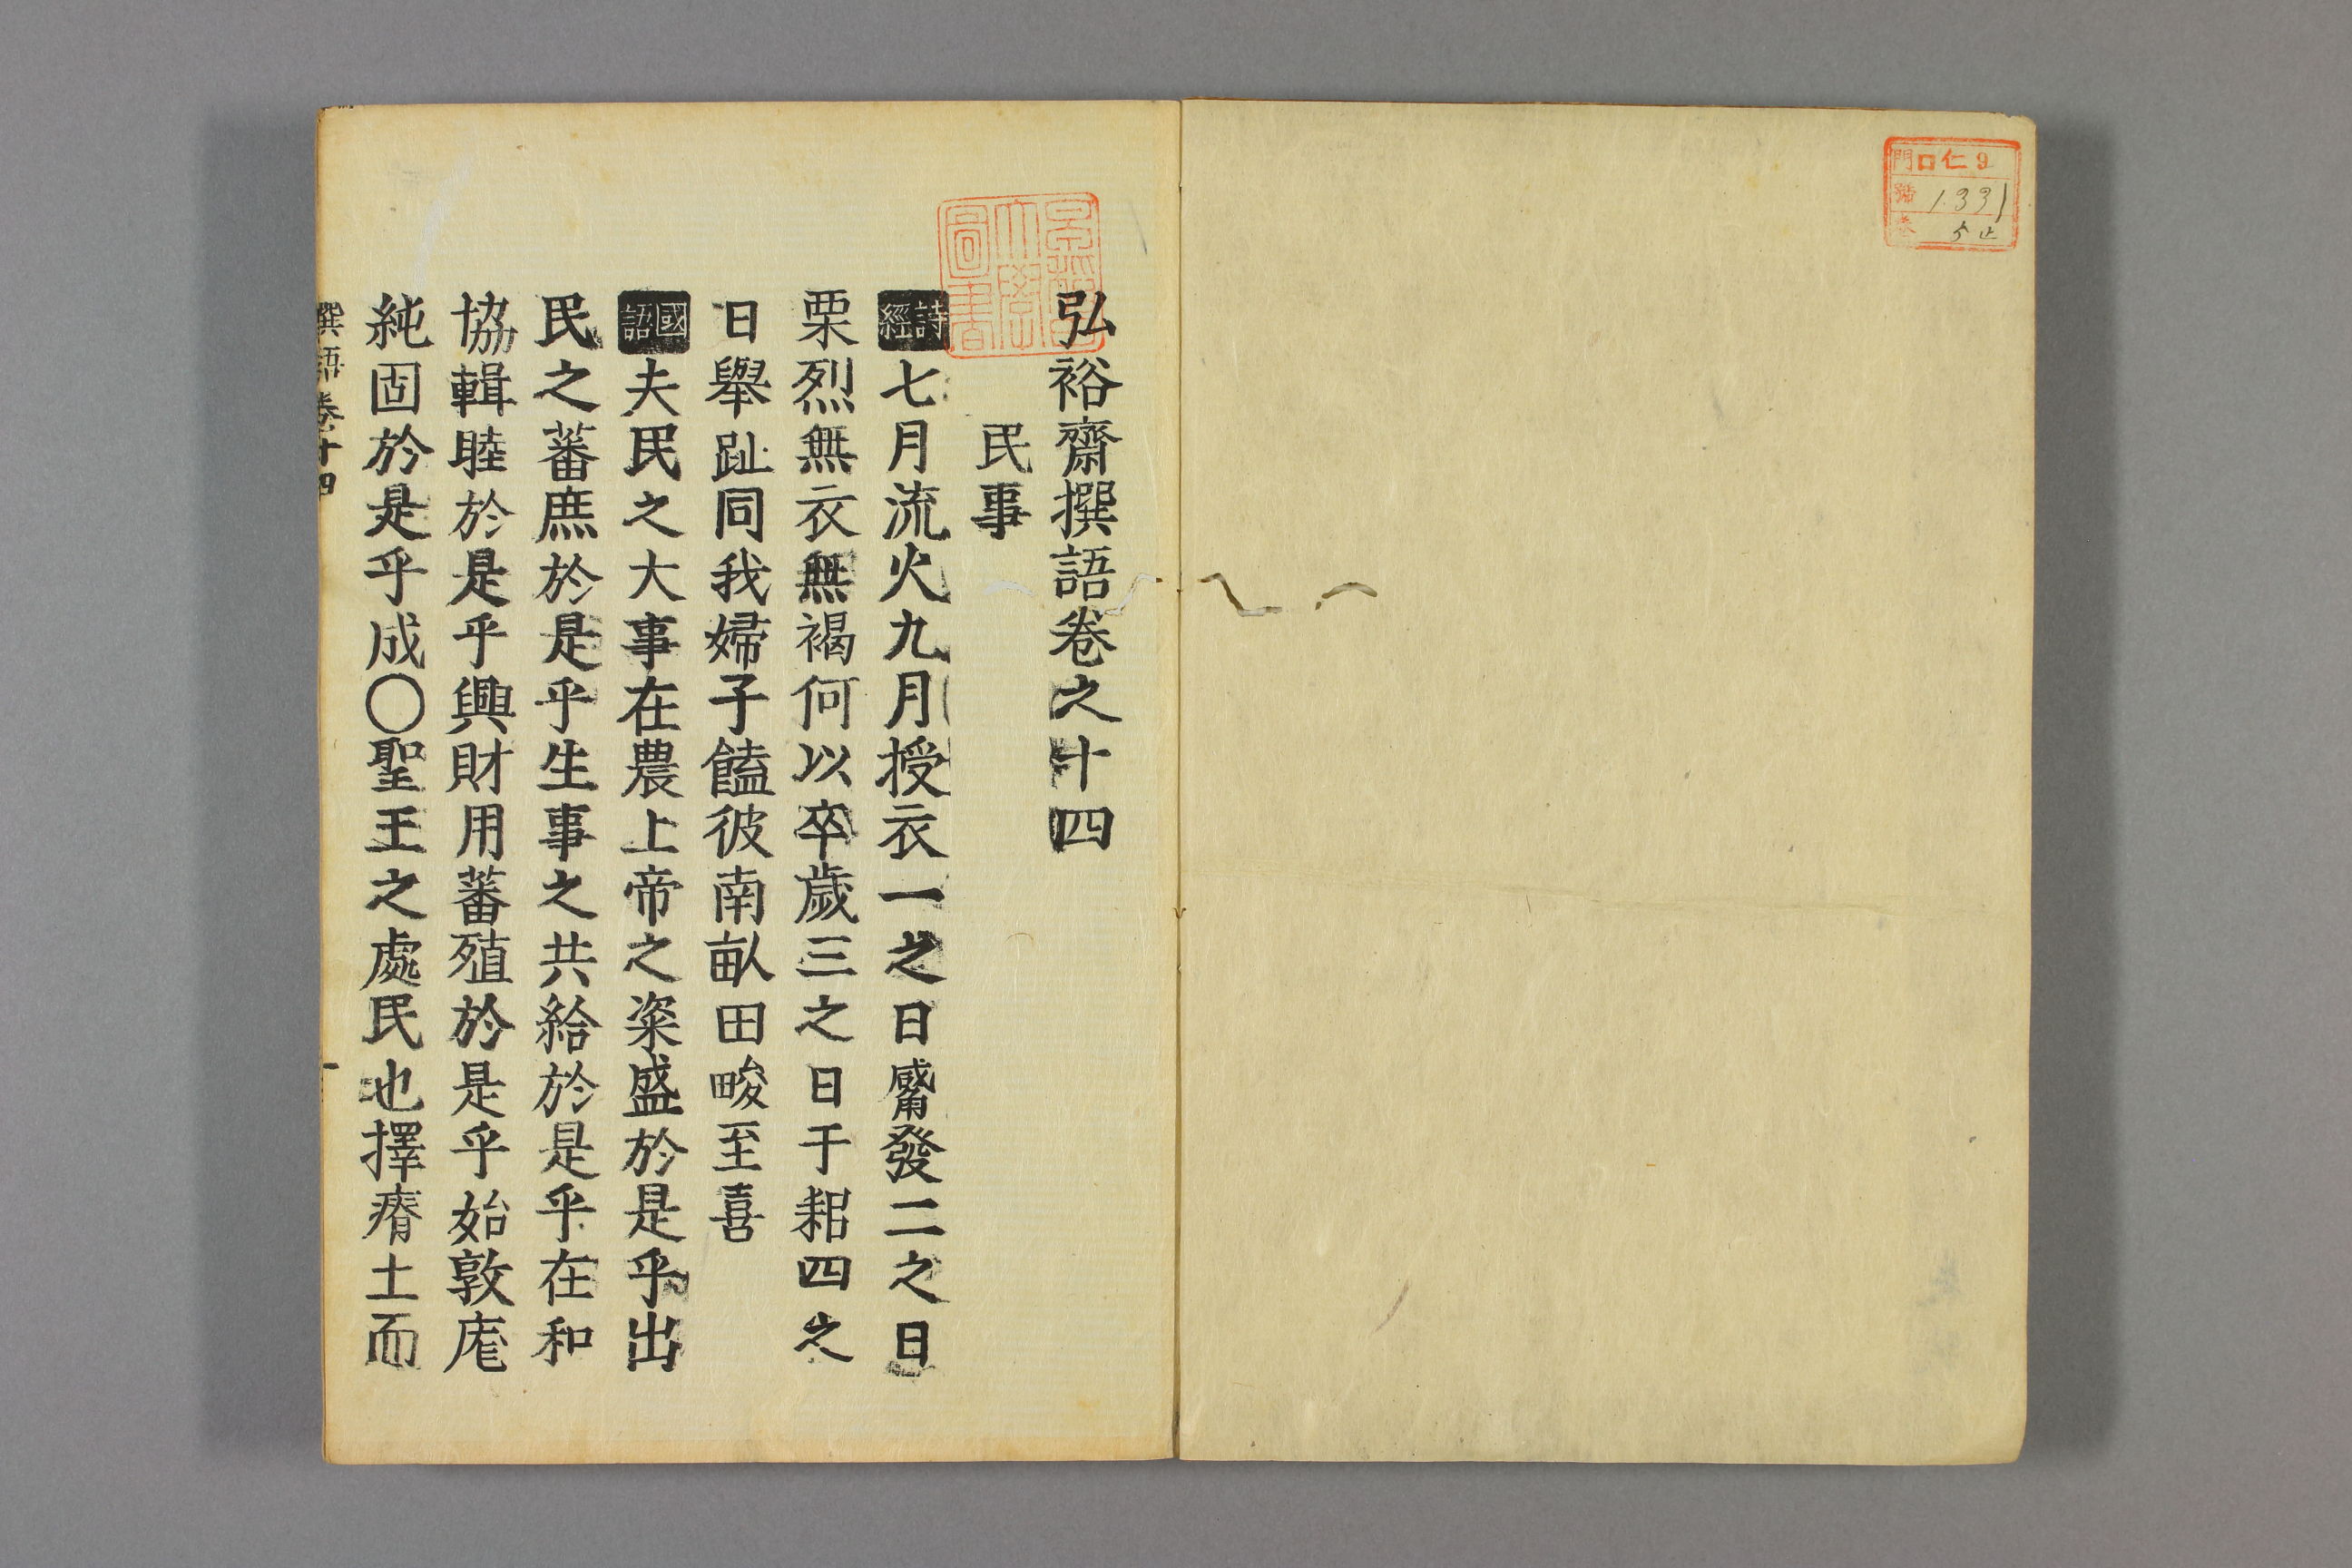 門 口仁9
號 1331
卷 5止
弘裕齋撰語卷之十四
民事
詩經七月流火九月授衣一之日觱發二之日
栗烈無衣無褐何以卒歲三之日于耜四之
日舉趾同我婦子饁彼南畝田畯至喜
國語夫民之大事在農上帝之粢盛於是乎出
民之蕃庶於是乎生事之共給於是乎在和
協輯睦於是乎興財用蕃殖於是乎始敦庬
純固於是乎成〇聖王之處民也擇瘠土而
撰語卷十四
一